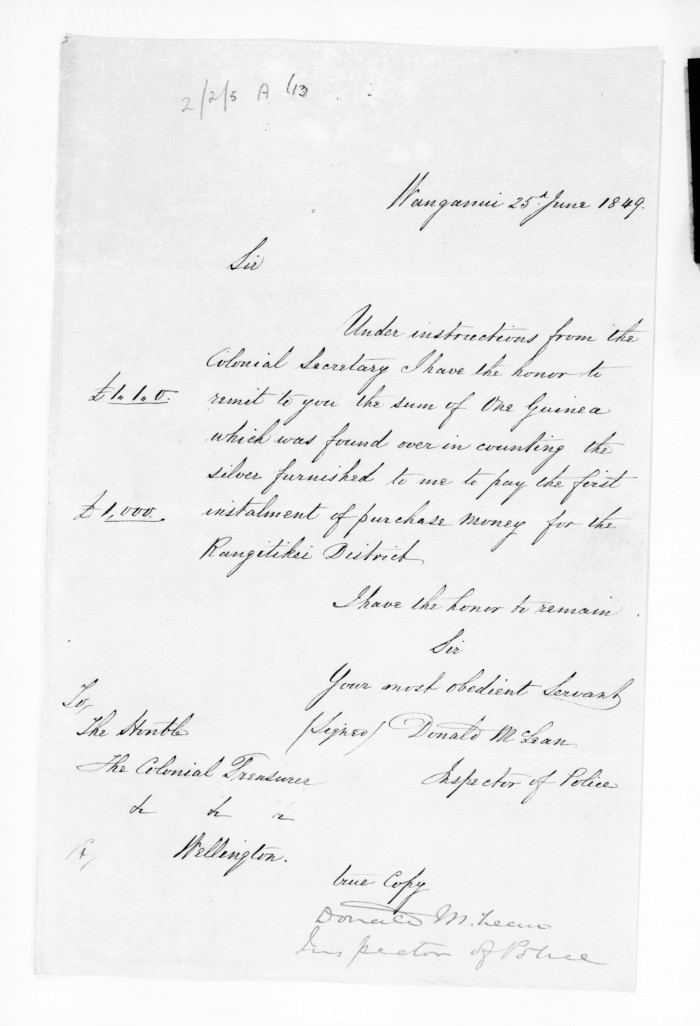 2/2/5 A 13
Wanganui 25th June 1849.
Sir
Under instructions from the
Colonial Secretary I have the honor to
£1. 1. 0. remit to you the sum of One Guinea
which was found over in counting the
silver furnished to me to pay the first
£1,000. instalment of purchase money for the
Rangitikei District
I have the honor to remain
Sir
Your most obedient Servant
To, 
The Honble (Signed) Donald McLean
The Colonial Treasurer Inspector of Police
&c &c &c
Wellington.
true Copy
Donald McLean
Inspector of Police